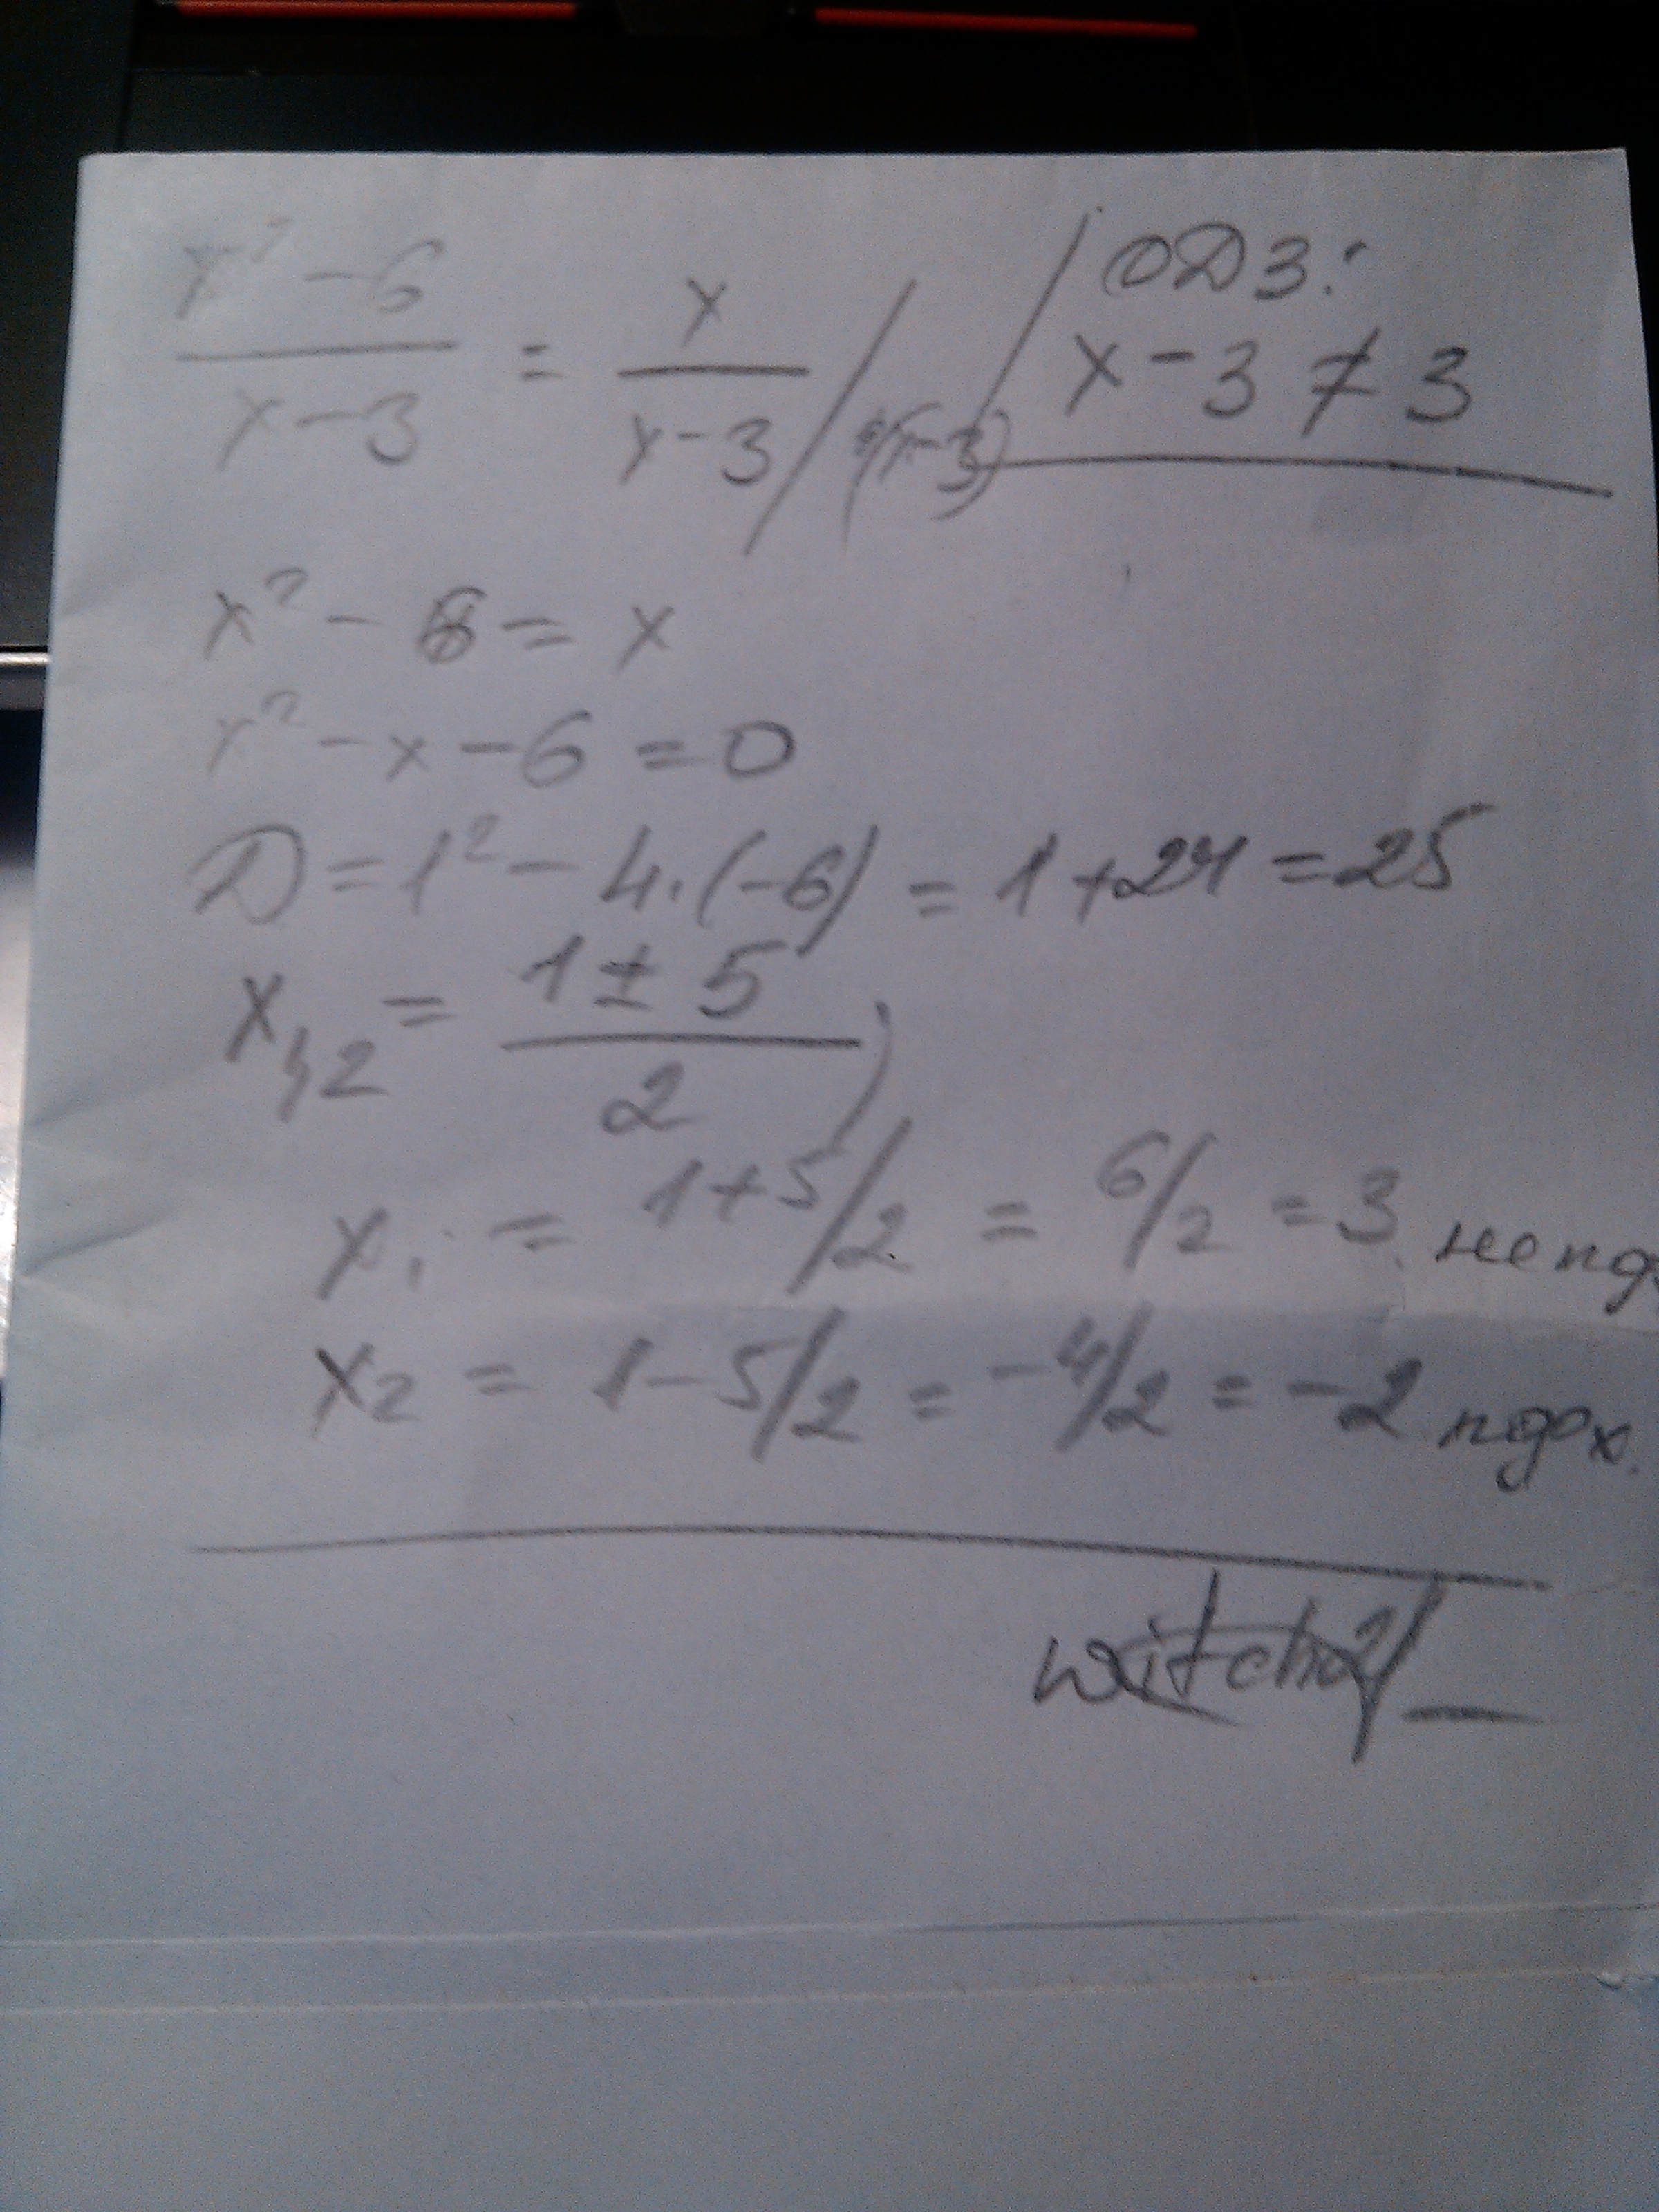 x² - 6 / x - 3 = x / x - 3 / (x-3)
ОДЗ:
x - 3 ≠ 3
x² - 6 = x
x² - x - 6 = 0
D = 1² - 4·(-6) = 1 + 24 = 25
x1,2 = 1 ± 5 / 2;
x1 = 1+5/2 = 6/2 = 3
x2 = 1-5/2 = -4/2 = -2 пдох.